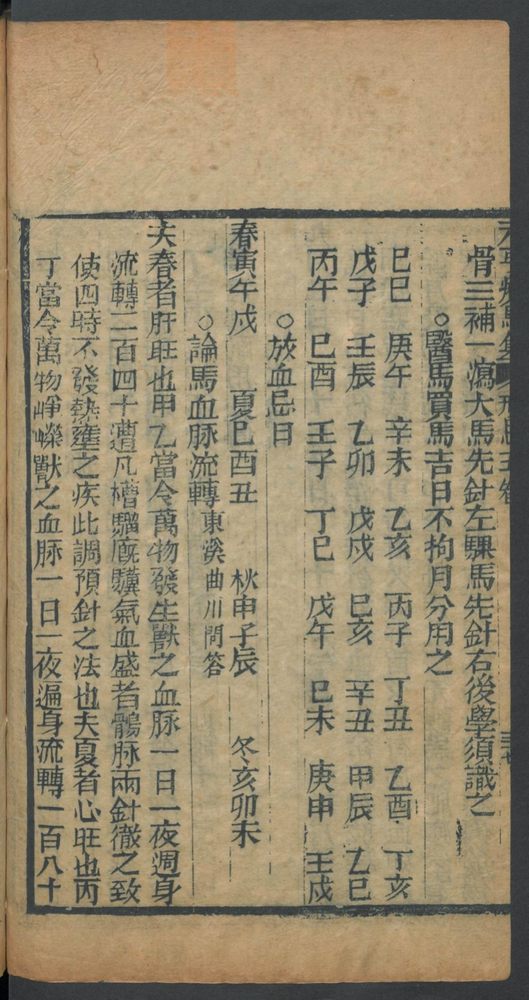 骨三補一瀉大馬先針左騍馬先針右後學須識之
○醫馬買馬吉日不拘月分用之
己巳 庚午 辛未 乙亥 丙子 丁丑 乙酉 丁亥
戊子 壬辰 乙卯 戊戌 己亥 辛丑 甲辰 乙巳
丙午 己酉 壬子 丁巳 戊午 己未 庚申 壬戌
○放血忌日
春寅午戌 夏巳酉丑 秋申子辰 冬亥卯未
○論馬血脉流轉東溪曲川問答
夫春者肝旺也甲乙當令萬物發生獸之血脉一日一夜週身
流轉二百四十遭凡槽騸廐驥氣血盛者鶻脉兩針徹之致
使四時不發熱壅之疾此調預針之法也夫夏者心旺也丙
丁當令萬物崢嶸獸之血脉一日一夜遍身流轉一百八十